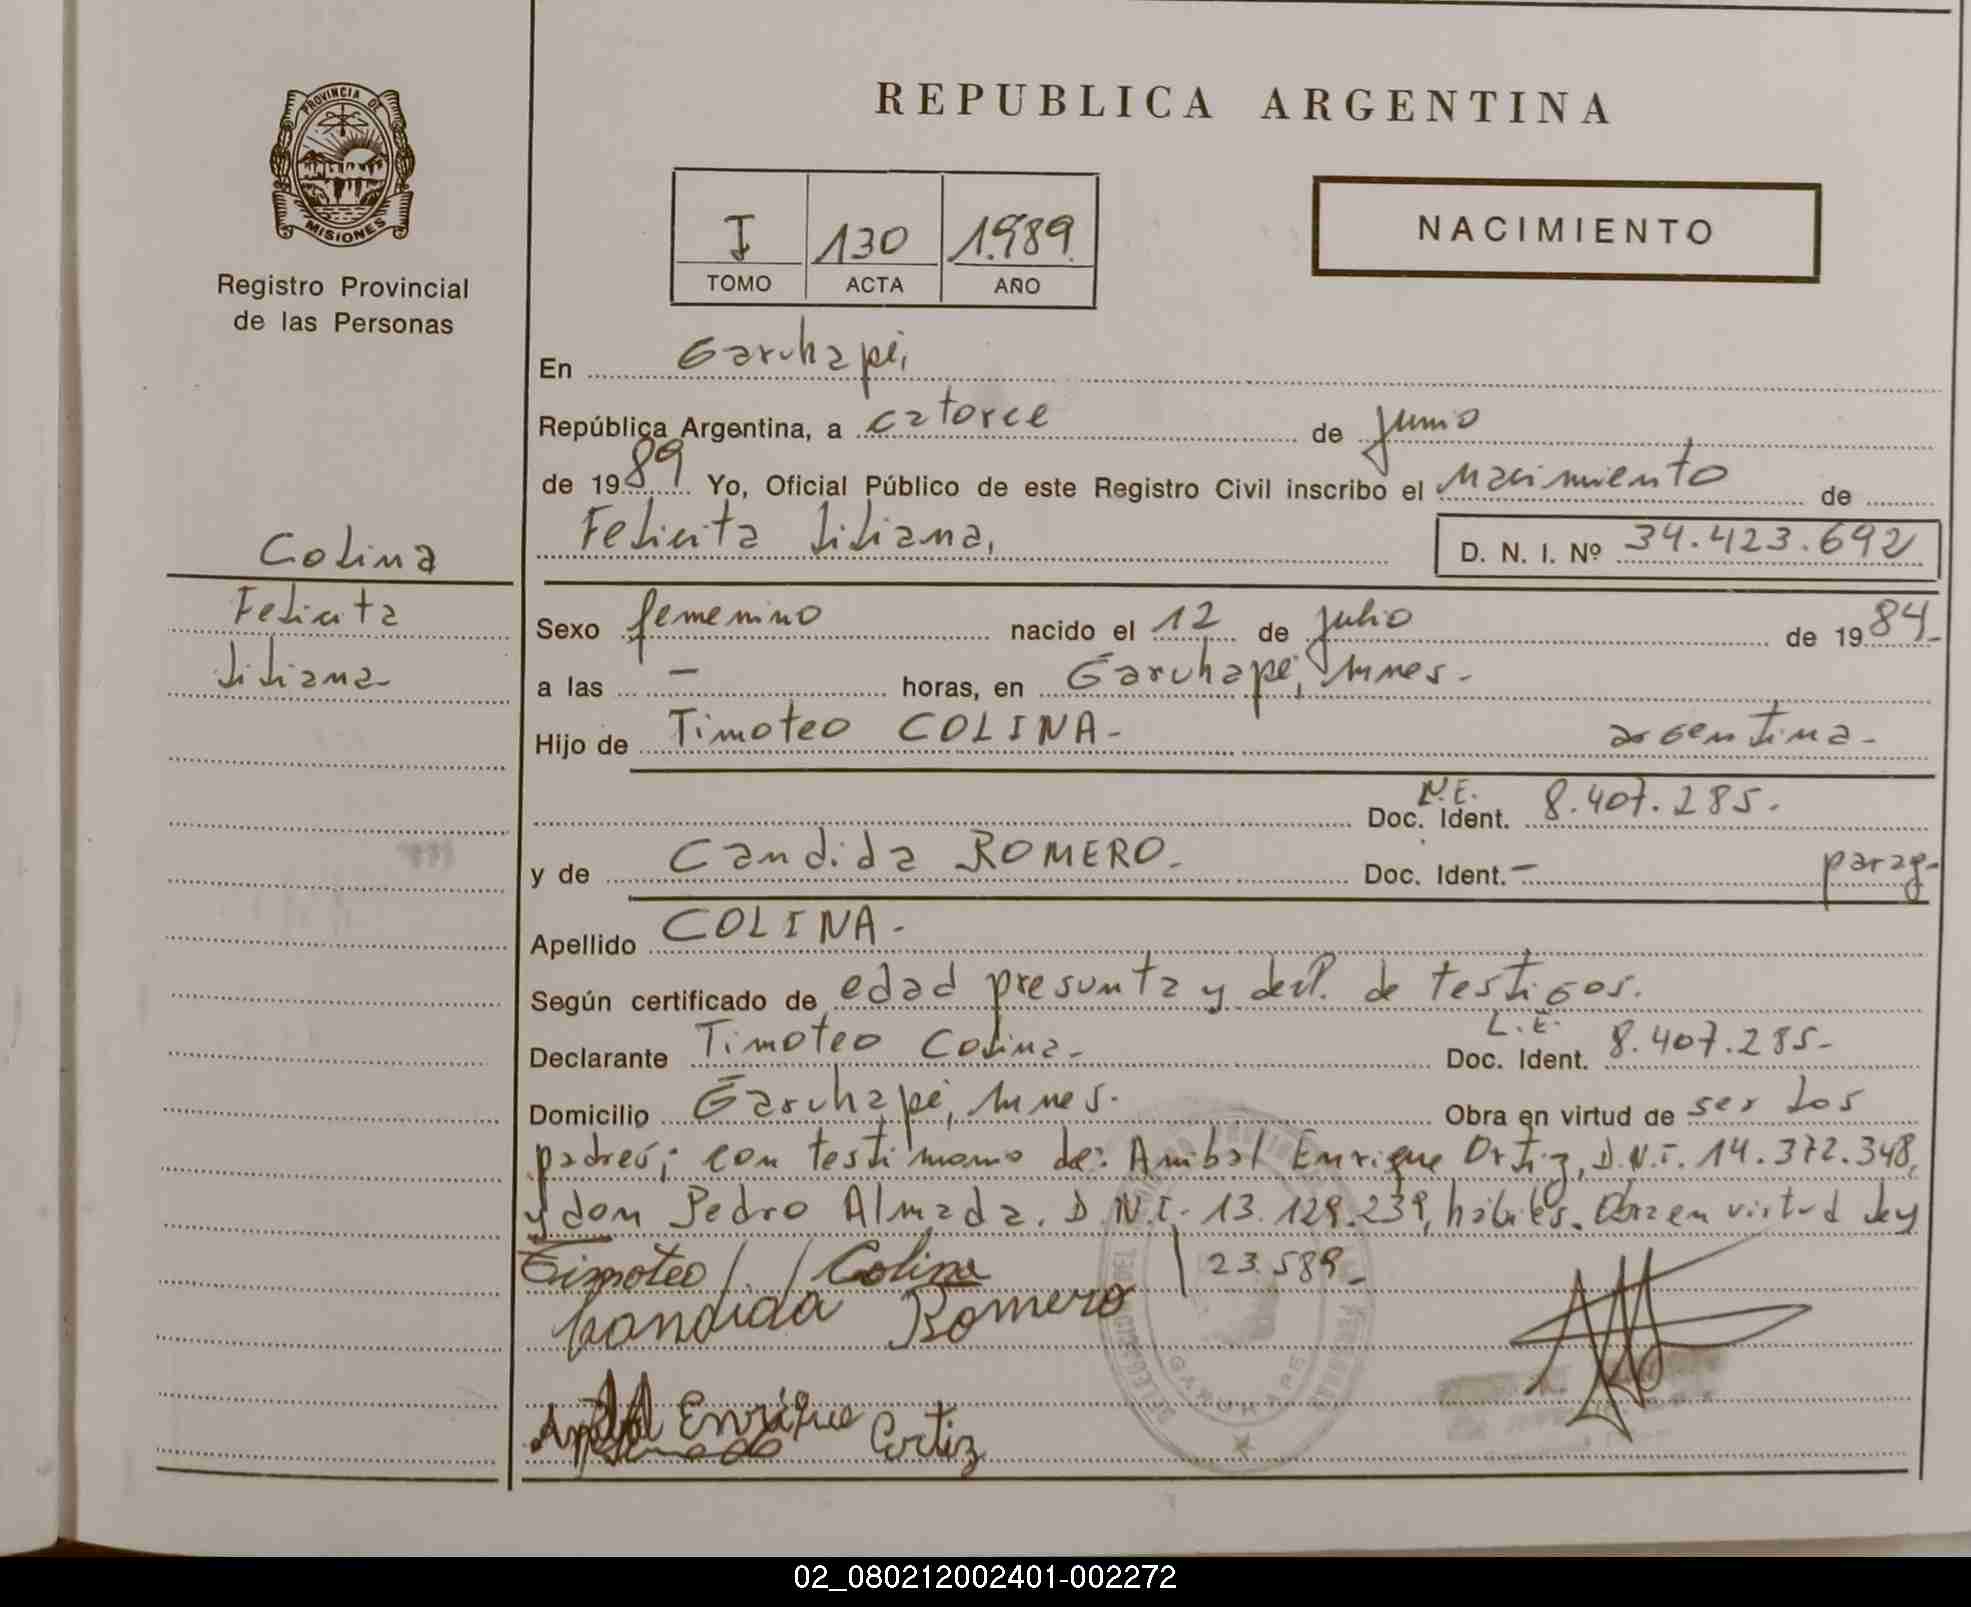 PROVINCIA DE
MISIONES
Registro Provincial
de las Personas
Colina
Felicita
Liliana
REPUBLICA ARGENTINA
I 130 1.989.
TOMO ACTA AÑO
NACIMIENTO
En Garuhapé,
República Argentina, a catorce de junio
de 1989 Yo, Oficial Público de este Registro Civil inscribo el nacimiento de
Felicita Liliana,
D. N. I. Nº 34.423.692
Sexo femenino nacido el 12 de julio de 1984-
a las — horas, en Garuhapé, Mnes.-
Hijo de Timoteo COLINA- argentina-
Doc. Ident. 8.407.285.
y de Candida ROMERO- Doc. Ident. — parag-
Apellido COLINA-
Según certificado de edad presunta y decl. de testigos.
Declarante Timoteo Colina- Doc. Ident. L.E. 8.407.285-
Domicilio Garuhapé, Mnes.- Obra en virtud de ser los
padres; con testimonio de: Anibal Enrique Ortiz, D.N.I. 14.372.348,
y don Pedro Almada. D.N.I. 13.129.239, hábiles. Obra en virtud ley
23.589-
Timoteo Colina
Candida Romero
Enrique Ortiz
GARUHAPE
02_080212002401-002272